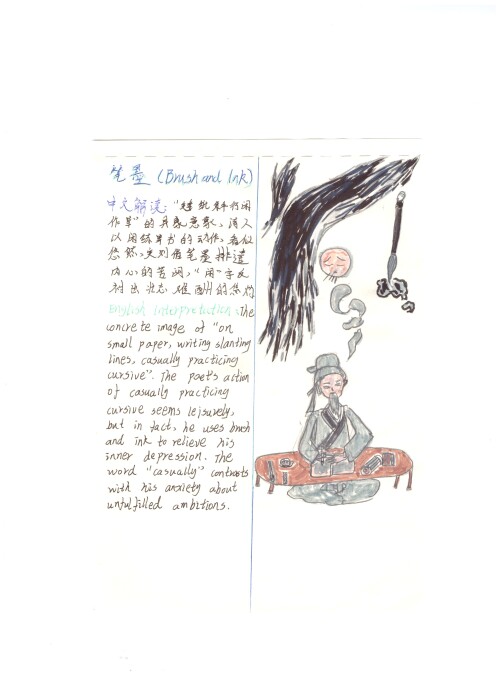 笔墨 (Brush and Ink)
中文解读: "矮纸斜行闲
作草"的具象意象,诗人
以闲练草书的动作,看似
悠然,实则借笔墨排遣
内心的苦闷,"闲"字反
衬出壮志难酬的焦灼
English Interpretation: The
concrete image of "on
small paper, writing slanting
lines, casually practicing
cursive". The poet's action
of casually practicing
cursive seems leisurely,
but in fact, he uses brush
and ink to relieve his
inner depression. The
word "casually" contrasts
with his anxiety about
unfulfilled ambitions.